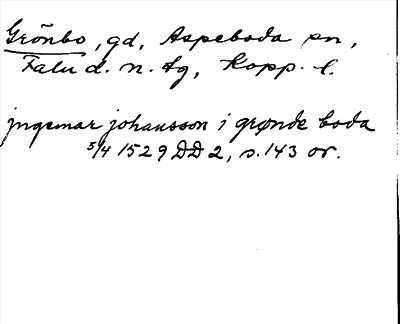 Grönbo, gd, Aspeboda sn,
Falu d. n. tg, Kopp. l.
jngemar johansson i grønde boda
5/4 1529 DD 2, s. 143 or.